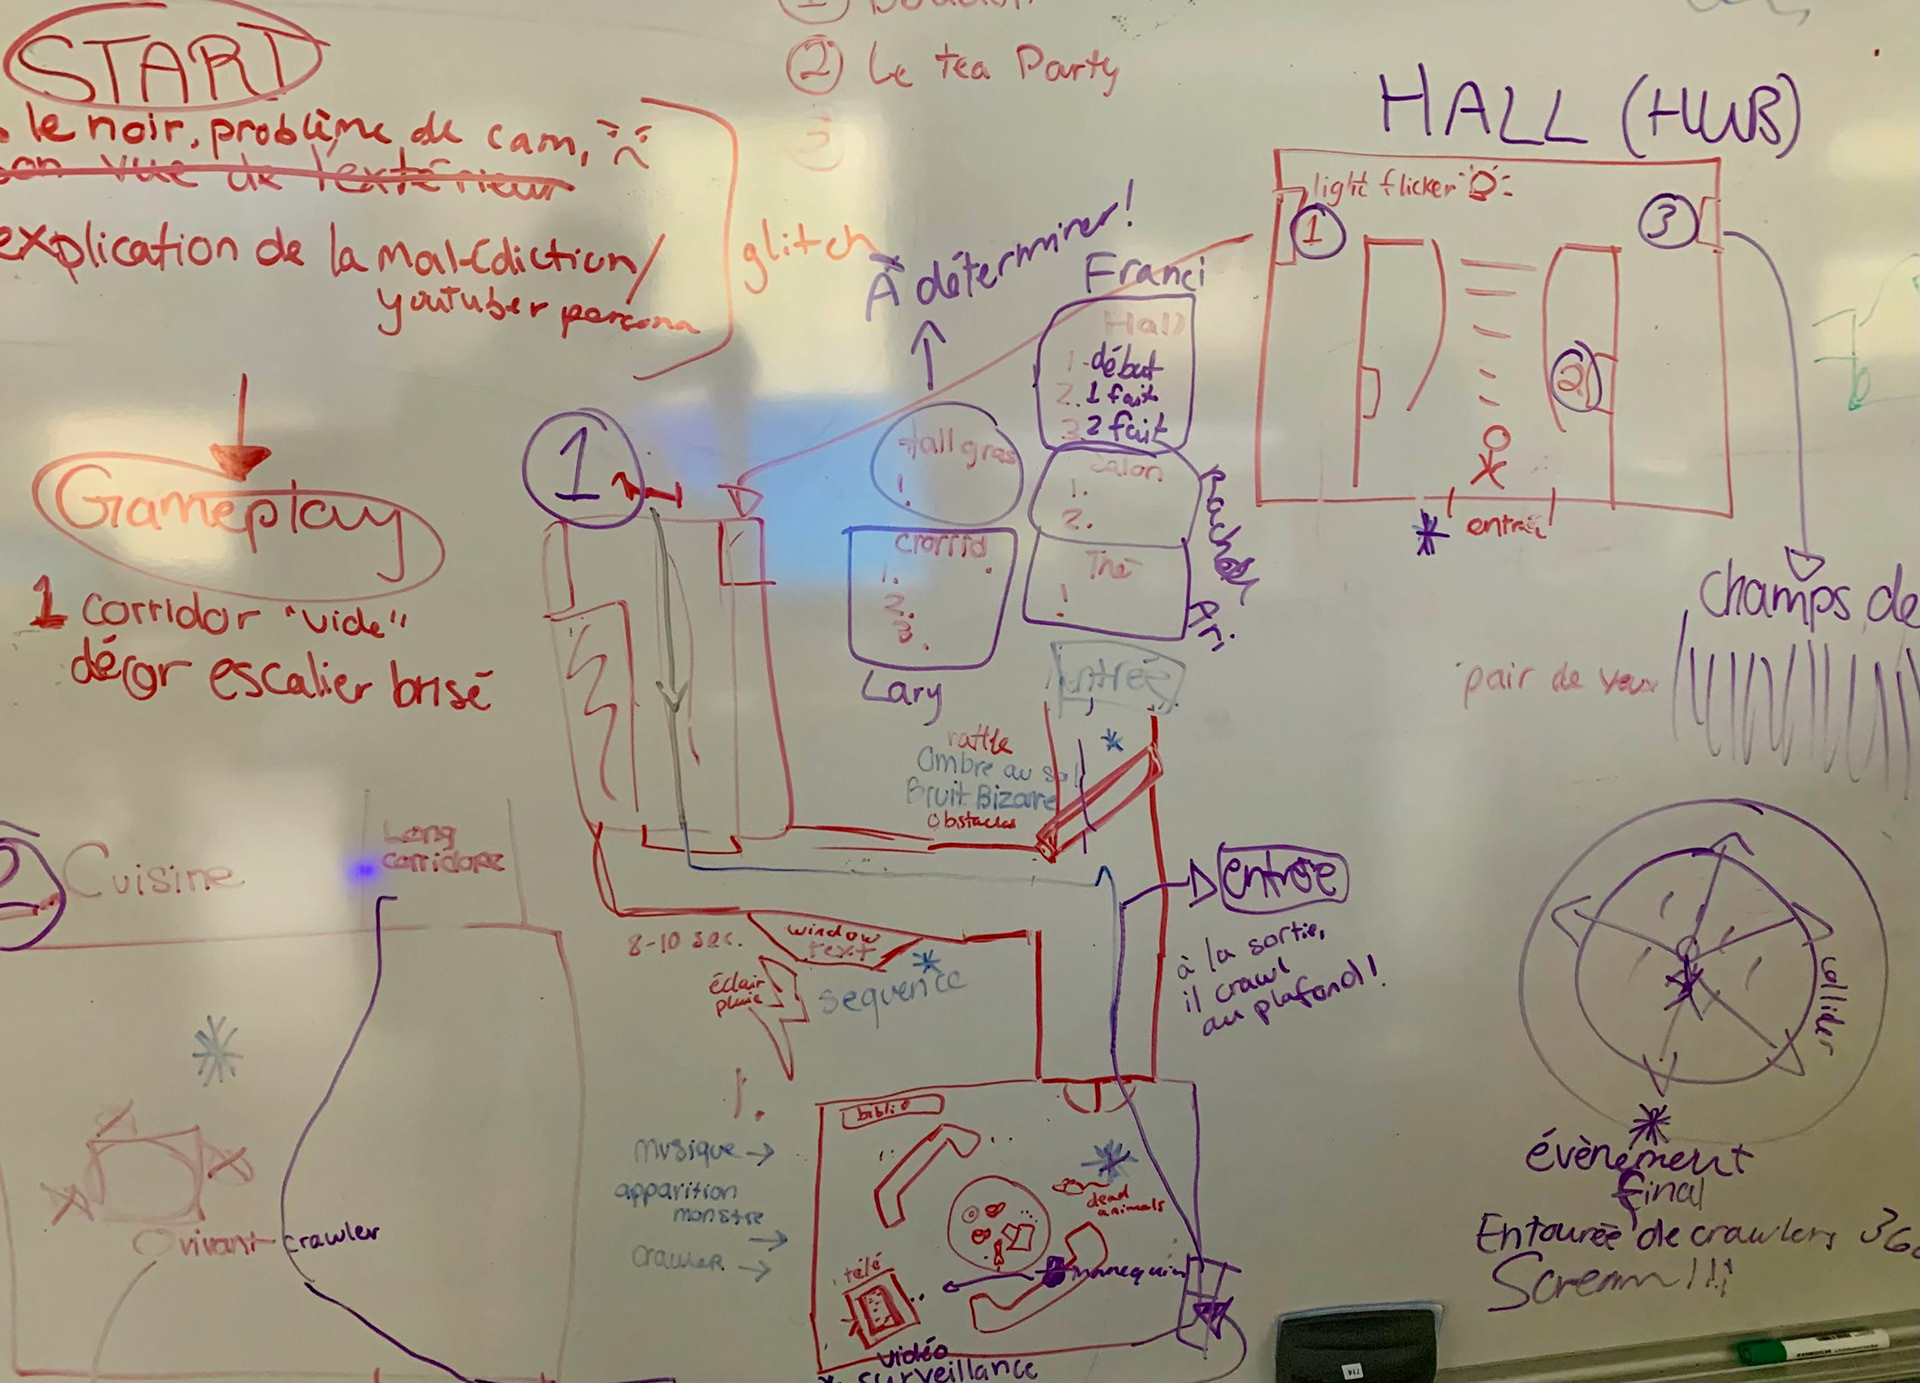 ② Le tea Party
START
le noir, problème de cam,
on vue de l'extérieur
explication de la malédiction/
youtuber persona
glitch
À déterminer!
HALL (HUB)
light flicker
1
3
2
entrée
Franci
Hall
1. début
2. 1 fait
3. 2 fait
tall gras
1.
Salon
1.
2.
Corrid
1.
2.
3.
Thé
1
Lary
Ari
Gameplay
1 corridor "vide"
décor escalier brisé
1
champs de
pair de yeux
entrée
rattle
Ombre au sol
Bruit Bizarre
obstacles
entrée
à la sortie,
il crawl
au plafond!
2 Cuisine
Long
corridore
vivant crawler
8-10 sec.
window
text
éclair
pluie
séquence
1.
musique →
apparition
monstre →
crawler →
biblio
dead
animals
télé
mannequin
vidéo
surveillance
collider
évènement
final
Entourée de crawlers 360
Scream!!!
714